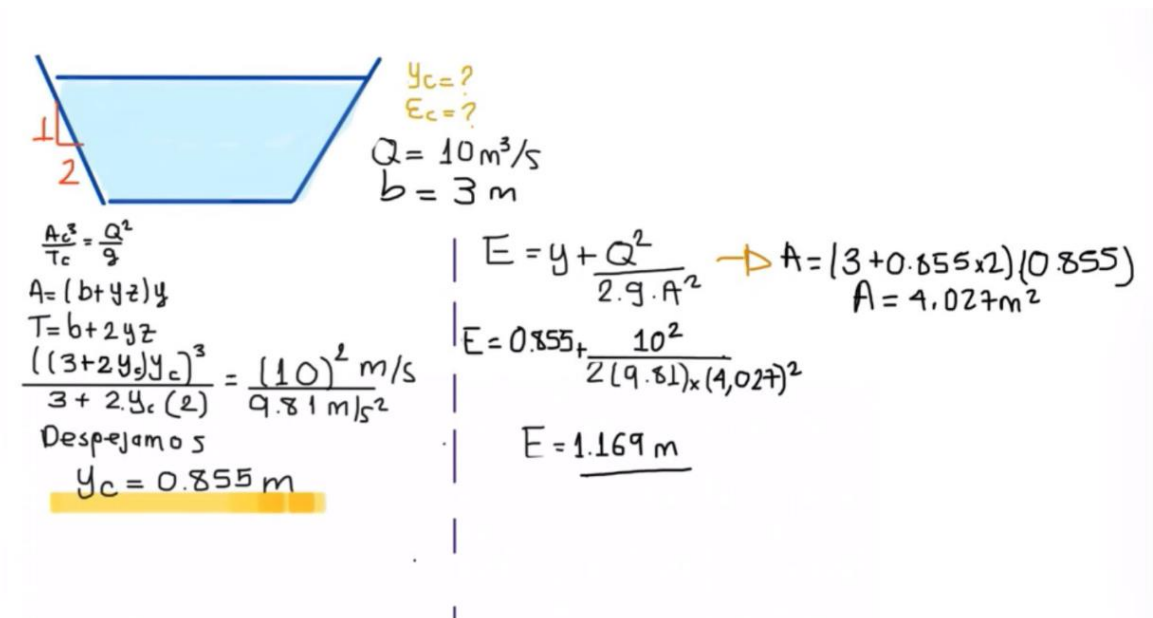 1
2
yc = ?
Ec = ?
Q = 10 m³/s
b = 3 m
Ac³/Tc = Q²/g
A = (b+yz)y
T = b+2yz
((3+2yc)yc)³/3 + 2.yc (2) = (10)² m/s/9.81 m/s²
Despejamos
yc = 0.855 m
E = y + Q²/2.g.A²
→ A = (3+0.855x2)(0.855)
A = 4.027m²
E = 0.855 + 10²/2(9.81)x(4,027)²
E = 1.169 m